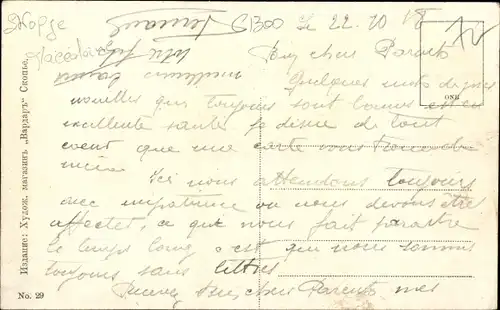 Skopje
le 22.10.18
Mes chers Parents
Quelques mots de mes
nouvelles qui toujours sont bonnes et en
excellente santé je désire de tout
coeur que une carte vous trouve de
même
Ici nous attendons toujours
avec impatience où nous devons être
affecter, ce que nous fait paraître
le temps long, c'est que nous sommes
toujours sans lettres
Recevez Mes chers Parents mes
Издание: Худож. магазинъ „Вардаръ" Скопье.
No. 29